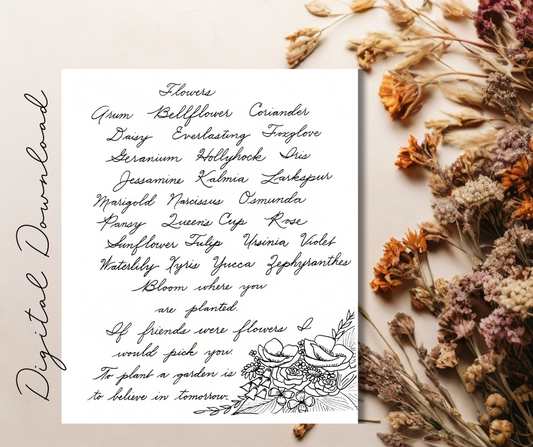 Digital Download
Flowers
Arum Bellflower Coriander
Daisy Everlasting Foxglove
Geranium Hollyhock Iris
Jessamine Kalmia Larkspur
Marigold Narcissus Osmunda
Pansy Queen's Cup Rose
Sunflower Tulip Ursinia Violet
Waterlily Xyris Yucca Zephyranthes
Bloom where you
are planted.
If friends were flowers I
would pick you.
To plant a garden is
to believe in tomorrow.